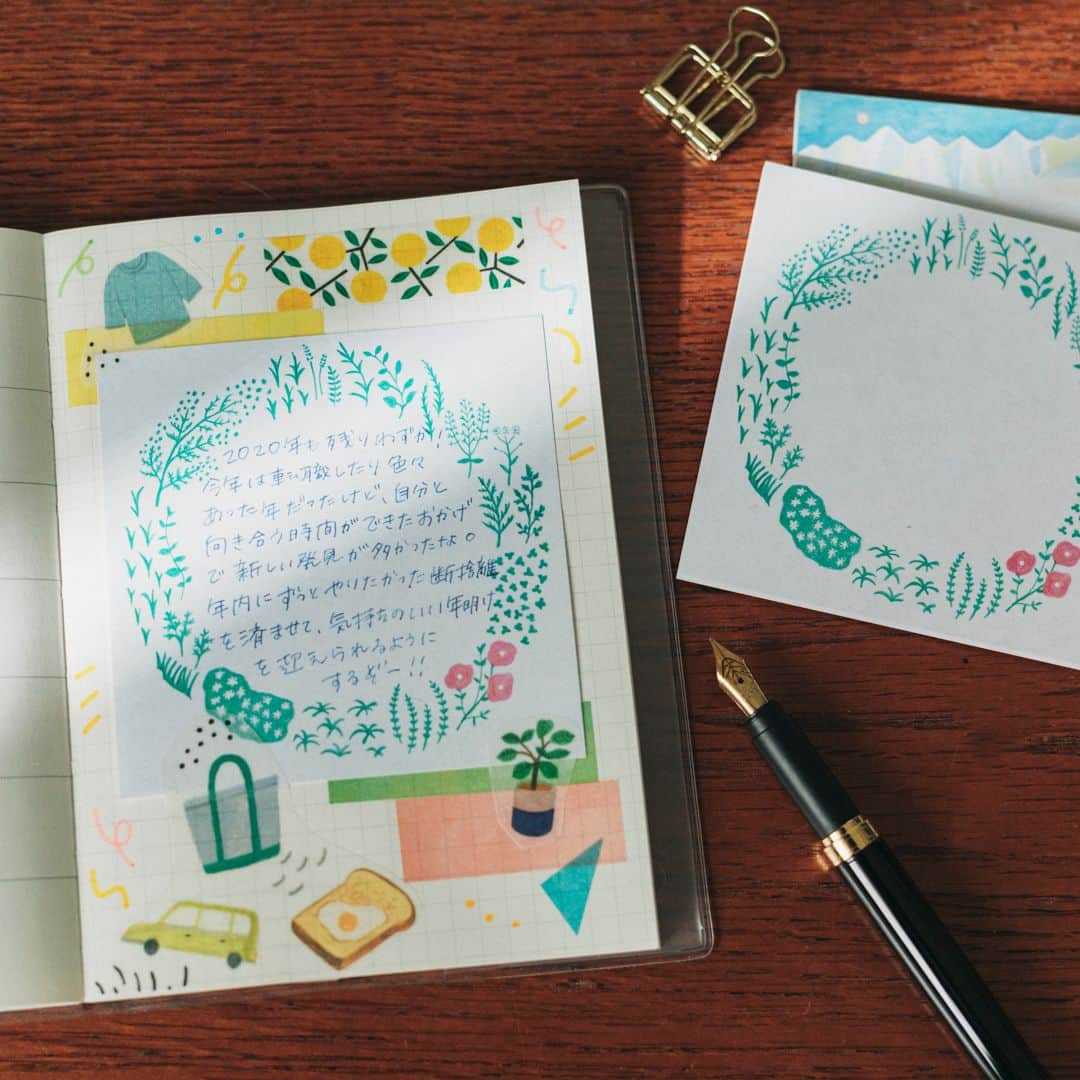 2020年も残りわずか!
今年は転職したり色々
あった年だったけど、自分と
向き合う時間ができたおかげ
で新しい発見が多かったな。
年内にずっとやりたかった断捨離
を済ませて、気持ちのいい年明け
を迎えられるように
するぞー!!